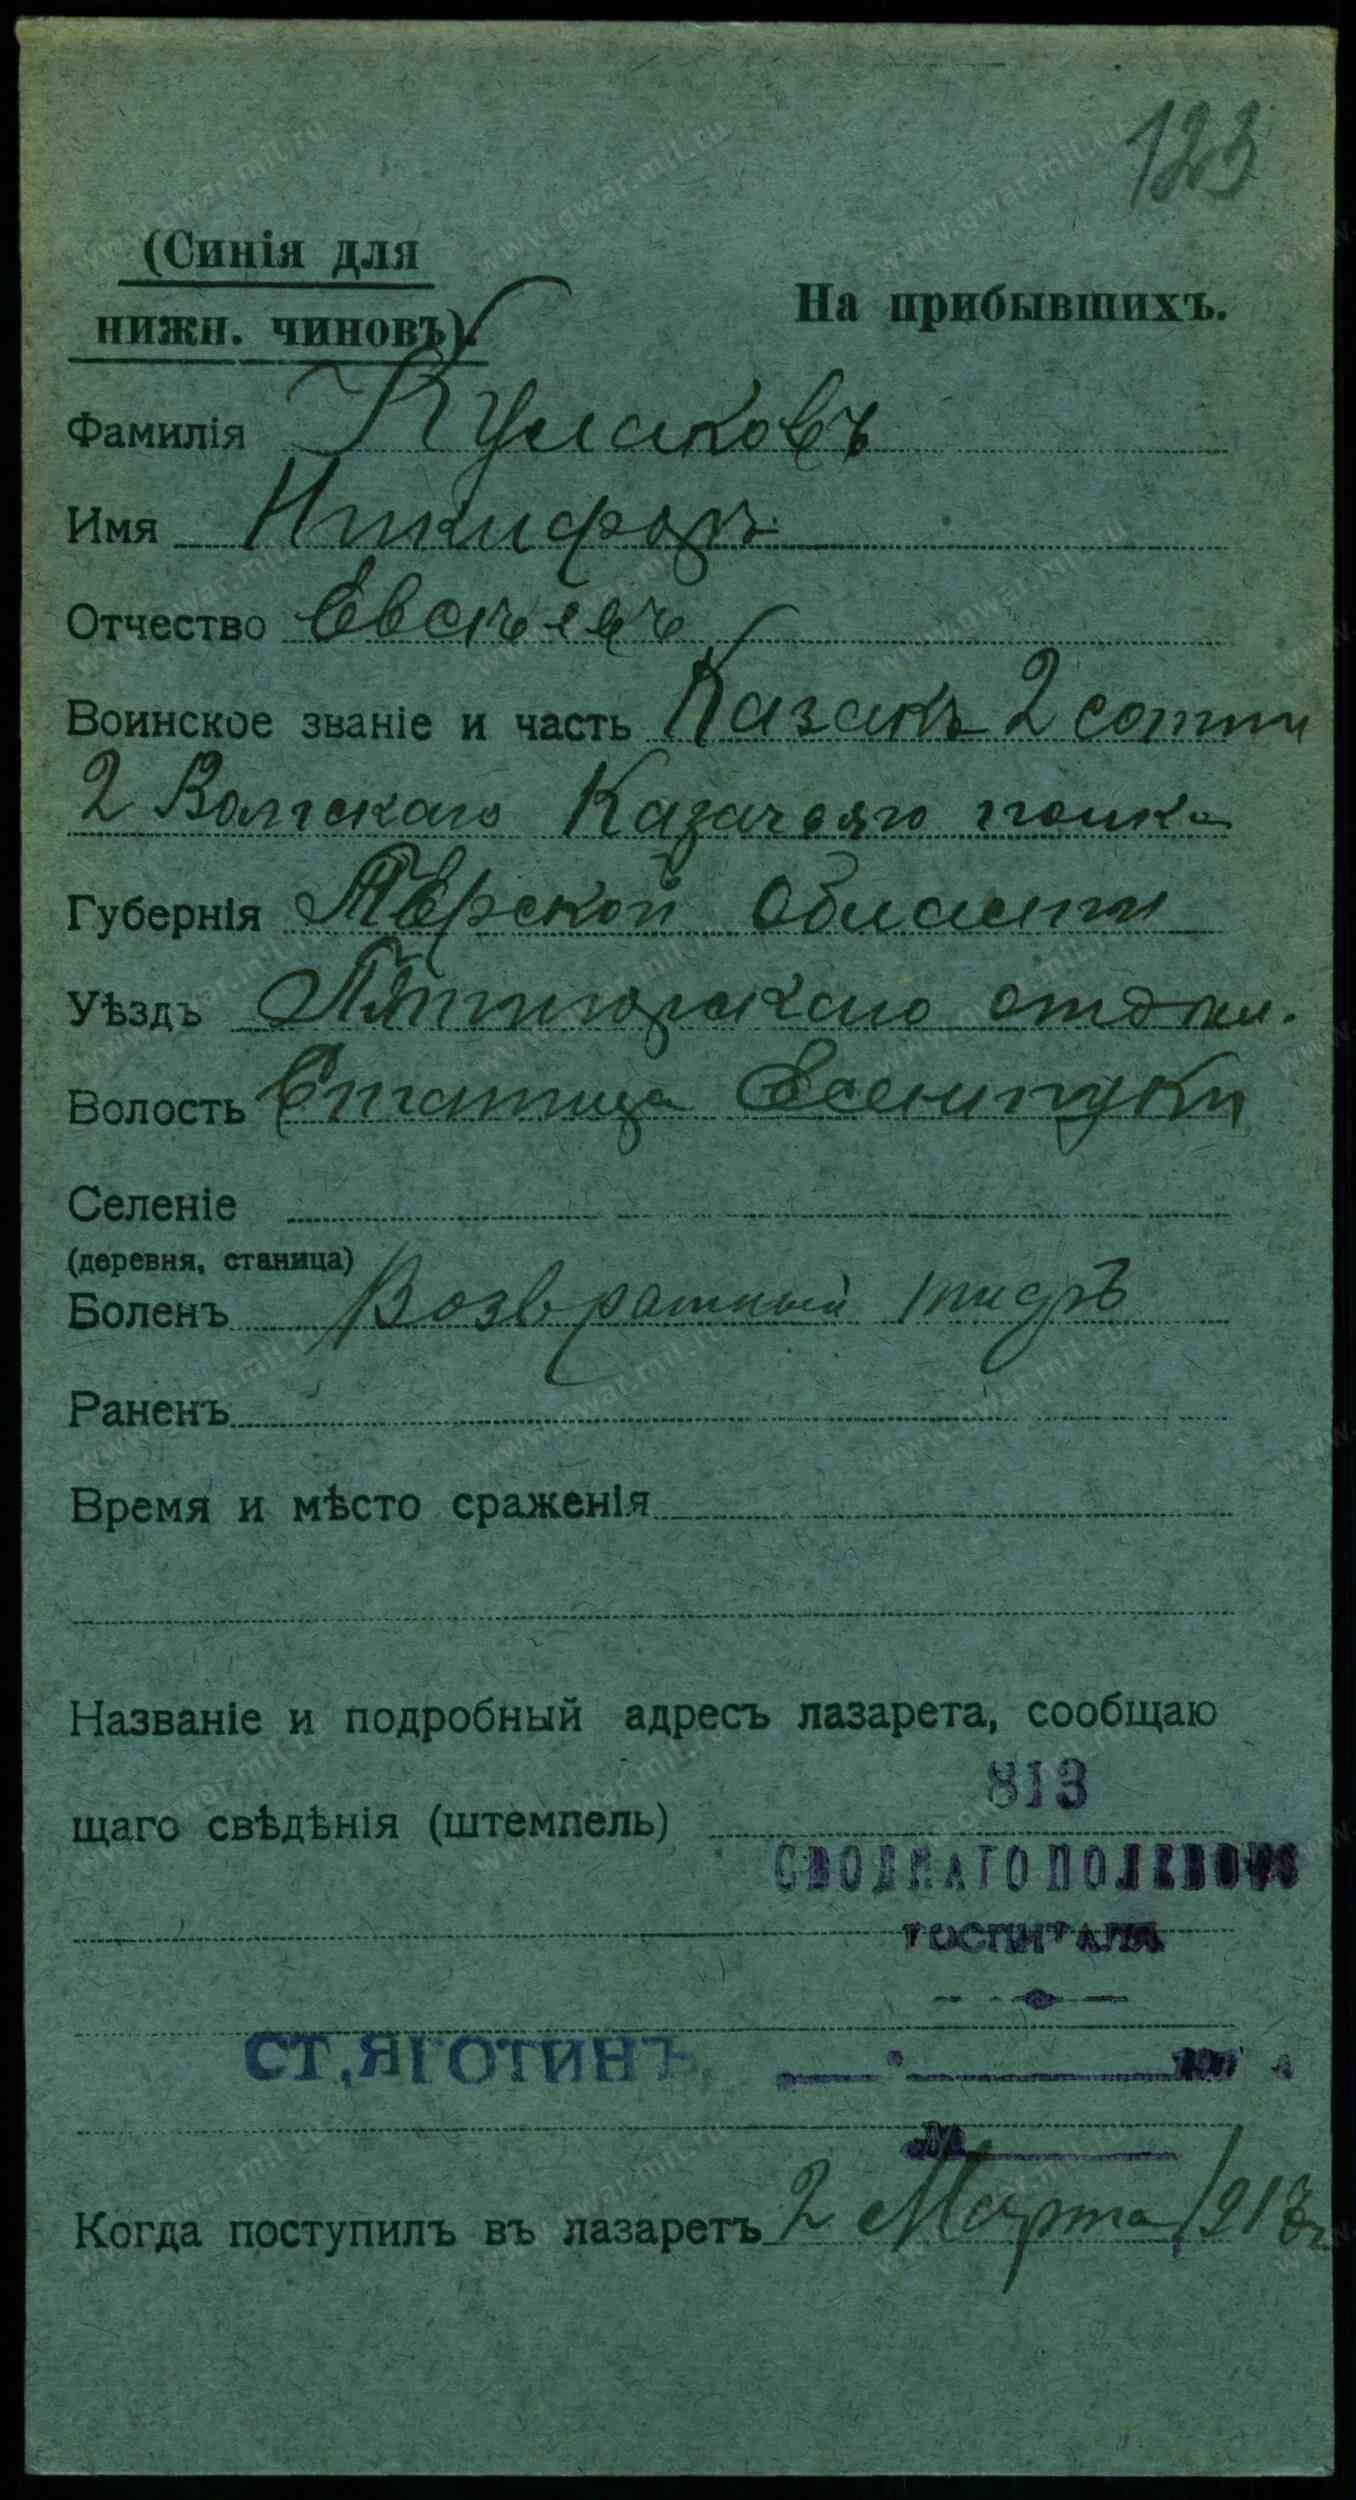 123
(Синія для
нижн. чиновъ).
На прибывшихъ.
Фамилія Кулаковъ
Имя Никифоръ
Отчество
Воинское званіе и часть Казакъ 2 сотни
2 Волгскаго Казачьяго полка
Губернія Терской Области
Уѣздъ Пятигорскаго отдѣл.
Волость Станица Есентуки
Селеніе
(деревня, станица)
Боленъ Возвратный тифъ
Раненъ
Время и мѣсто сраженія
Названіе и подробный адресъ лазарета, сообщаю
щаго свѣдѣнія (штемпель)
813
СВОДНАГО ПОЛЕВОГО
ГОСПИТАЛЯ
СТ, ЯГОТИНЪ.
№
Когда поступилъ въ лазаретъ 2 Марта